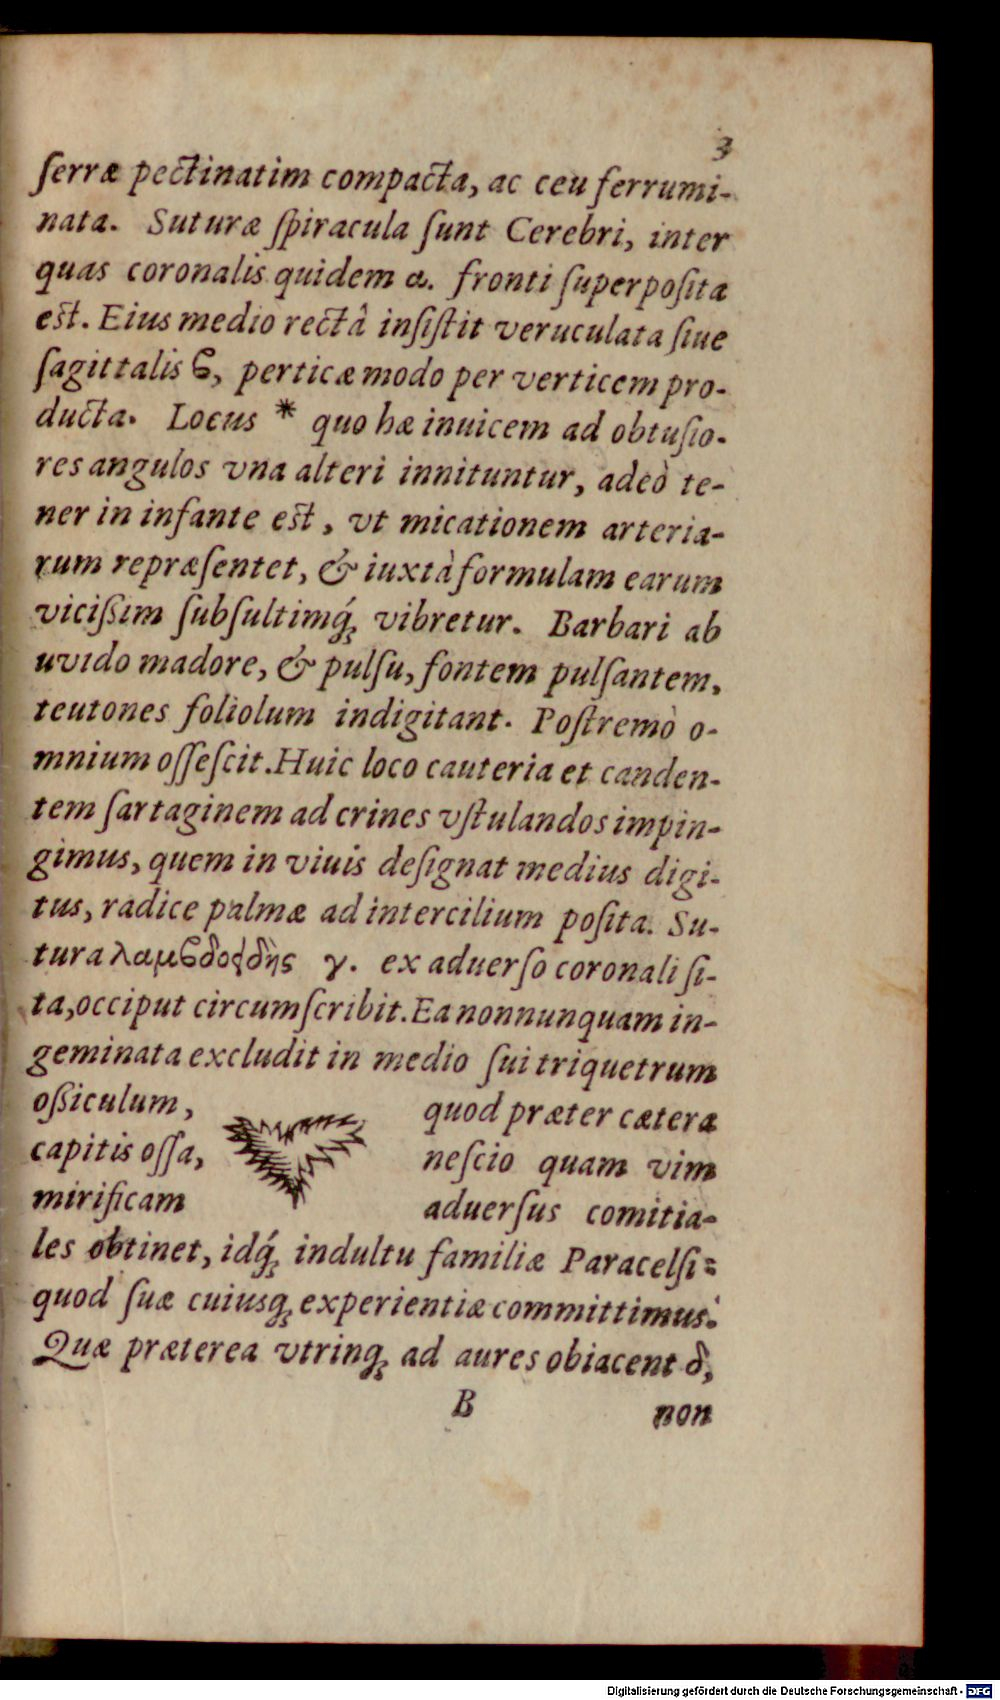 3
ſerræ pectinatim compacta, ac ceu ferrumi-
nata. Suturæ ſpiracula ſunt Cerebri, inter
quas coronalis quidem α. fronti ſuperpoſita
eſt. Eius medio rectâ inſiſtit veruculata ſiue
ſagittalis ϐ, perticæ modo per verticem pro-
ducta. Locus * quo hæ inuicem ad obtuſio-
res angulos vna alteri innituntur, adeò te-
ner in infante eſt, vt micationem arteria-
rum repræſentet, & iuxtà formulam earum
vicißim ſubſultimq́; vibretur. Barbari ab
uvido madore, & pulſu, fontem pulſantem,
teutones foliolum indigitant. Poſtremò o-
mnium oſſeſcit. Huic loco cauteria et canden-
tem ſartaginem ad crines vſtulandos impin-
gimus, quem in viuis deſignat medius digi-
tus, radice palmæ ad intercilium poſita. Su-
tura λαμϐδοειδὴς γ. ex aduerſo coronali ſi-
ta, occiput circumſcribit. Ea nonnunquam in-
geminata excludit in medio ſui triquetrum
oßiculum, quod præter cætera
capitis oſſa, neſcio quam vim
mirificam aduerſus comitia-
les obtinet, idq́; indultu familiæ Paracelſi:
quod ſuæ cuiusq; experientiæ committimus.
Quæ præterea vtrinq; ad aures obiacent δ,
B non
Digitalisierung gefördert durch die Deutsche Forschungsgemeinschaft - DFG